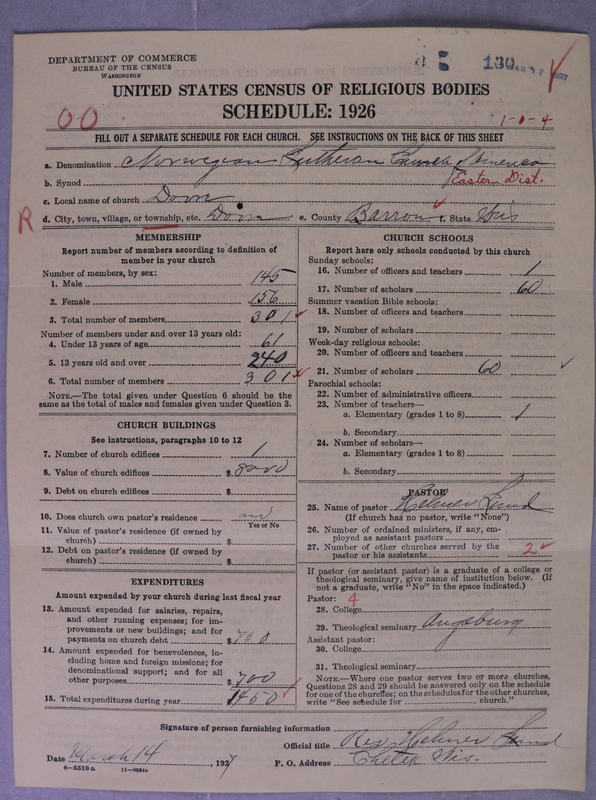 DEPARTMENT OF COMMERCE
BUREAU OF THE CENSUS
WASHINGTON
130
UNITED STATES CENSUS OF RELIGIOUS BODIES
SCHEDULE: 1926
00
1-0-4
FILL OUT A SEPARATE SCHEDULE FOR EACH CHURCH. SEE INSTRUCTIONS ON THE BACK OF THIS SHEET
a. Denomination Norwegian Lutheran Church of America
b. Synod Eastern Dist.
c. Local name of church Dovre
R
d. City, town, village, or township, etc. Dovre e. County Barron f. State Wis
MEMBERSHIP
Report number of members according to definition of
member in your church
Number of members, by sex:
1. Male 145
2. Female 156
3. Total number of members 301
Number of members under and over 13 years old:
4. Under 13 years of age 61
5. 13 years old and over 240
6. Total number of members 301
NOTE.—The total given under Question 6 should be the
same as the total of males and females given under Question 3.
CHURCH BUILDINGS
See instructions, paragraphs 10 to 12
7. Number of church edifices 1
8. Value of church edifices $ 8000
9. Debt on church edifices $
10. Does church own pastor's residence no
Yes or No
11. Value of pastor's residence (if owned by
church) $
12. Debt on pastor's residence (if owned by
church) $
EXPENDITURES
Amount expended by your church during last fiscal year
13. Amount expended for salaries, repairs,
and other running expenses; for im-
provements or new buildings; and for
payments on church debt $
14. Amount expended for benevolences, in-
cluding home and foreign missions; for
denominational support; and for all
other purposes $ 700
15. Total expenditures during year 1450
CHURCH SCHOOLS
Report here only schools conducted by this church
Sunday schools:
16. Number of officers and teachers 1
17. Number of scholars 60
Summer vacation Bible schools:
18. Number of officers and teachers
19. Number of scholars
Week-day religious schools:
20. Number of officers and teachers
21. Number of scholars 60
Parochial schools:
22. Number of administrative officers
23. Number of teachers—
a. Elementary (grades 1 to 8) 1
b. Secondary
24. Number of scholars—
a. Elementary (grades 1 to 8)
b. Secondary
PASTOR
25. Name of pastor Helmer Lund
(If church has no pastor, write "None")
26. Number of ordained ministers, if any, em-
ployed as assistant pastors
27. Number of other churches served by the
pastor or his assistants 2
If pastor (or assistant pastor) is a graduate of a college or
theological seminary, give name of institution below. (If
not a graduate, write "No" in the space indicated.)
Pastor: 4
28. College
29. Theological seminary Augsburg
Assistant pastor:
30. College
31. Theological seminary
NOTE.—Where one pastor serves two or more churches,
Questions 28 and 29 should be answered only on the schedule
for one of the churches; on the schedules for the other churches,
write "See schedule for church."
Signature of person furnishing information
Official title Rev. Helmer Lund
Date March 14, 1927 P. O. Address Chetek Wis.
8-5518a 11-9684a